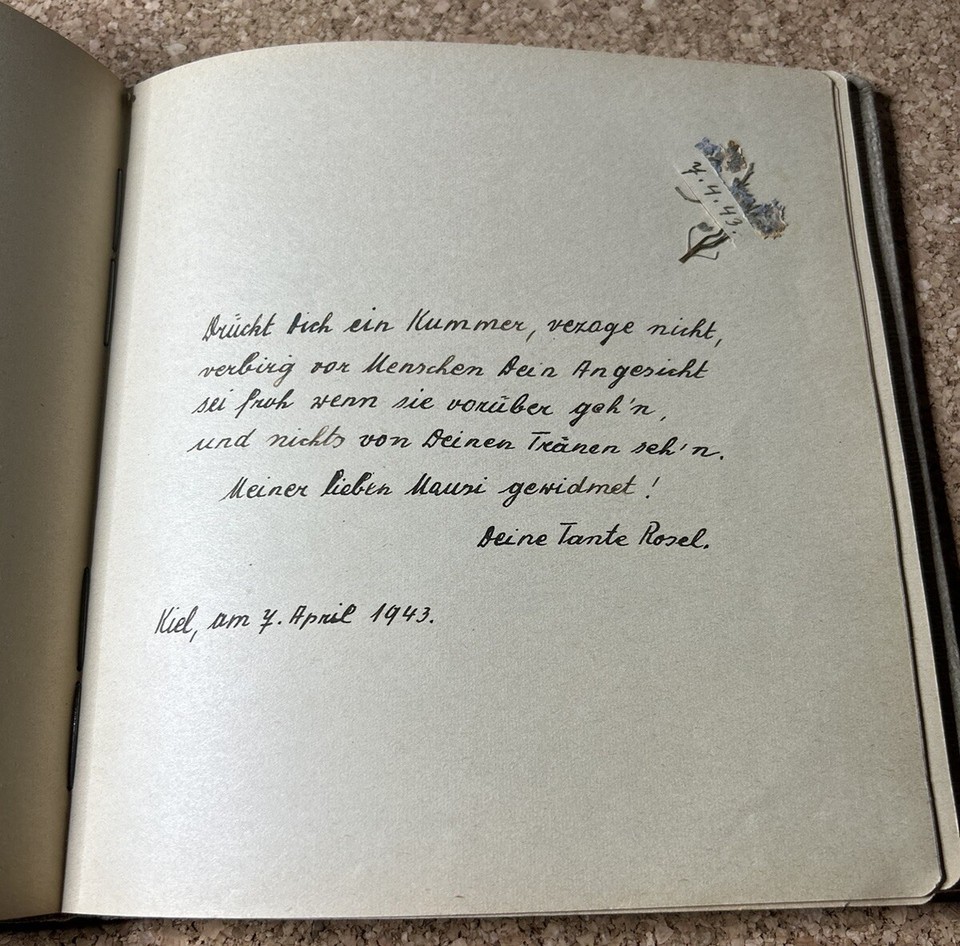 7.4.43.
Drückt Dich ein Kummer, verzage nicht,
verbirg vor Menschen Dein Angesicht
sei froh wenn sie vorüber geh'n,
und nichts von Deinen Tränen seh'n.
Meiner lieben Mausi gewidmet!
Deine Tante Rosel.
Kiel, am 7. April 1943.